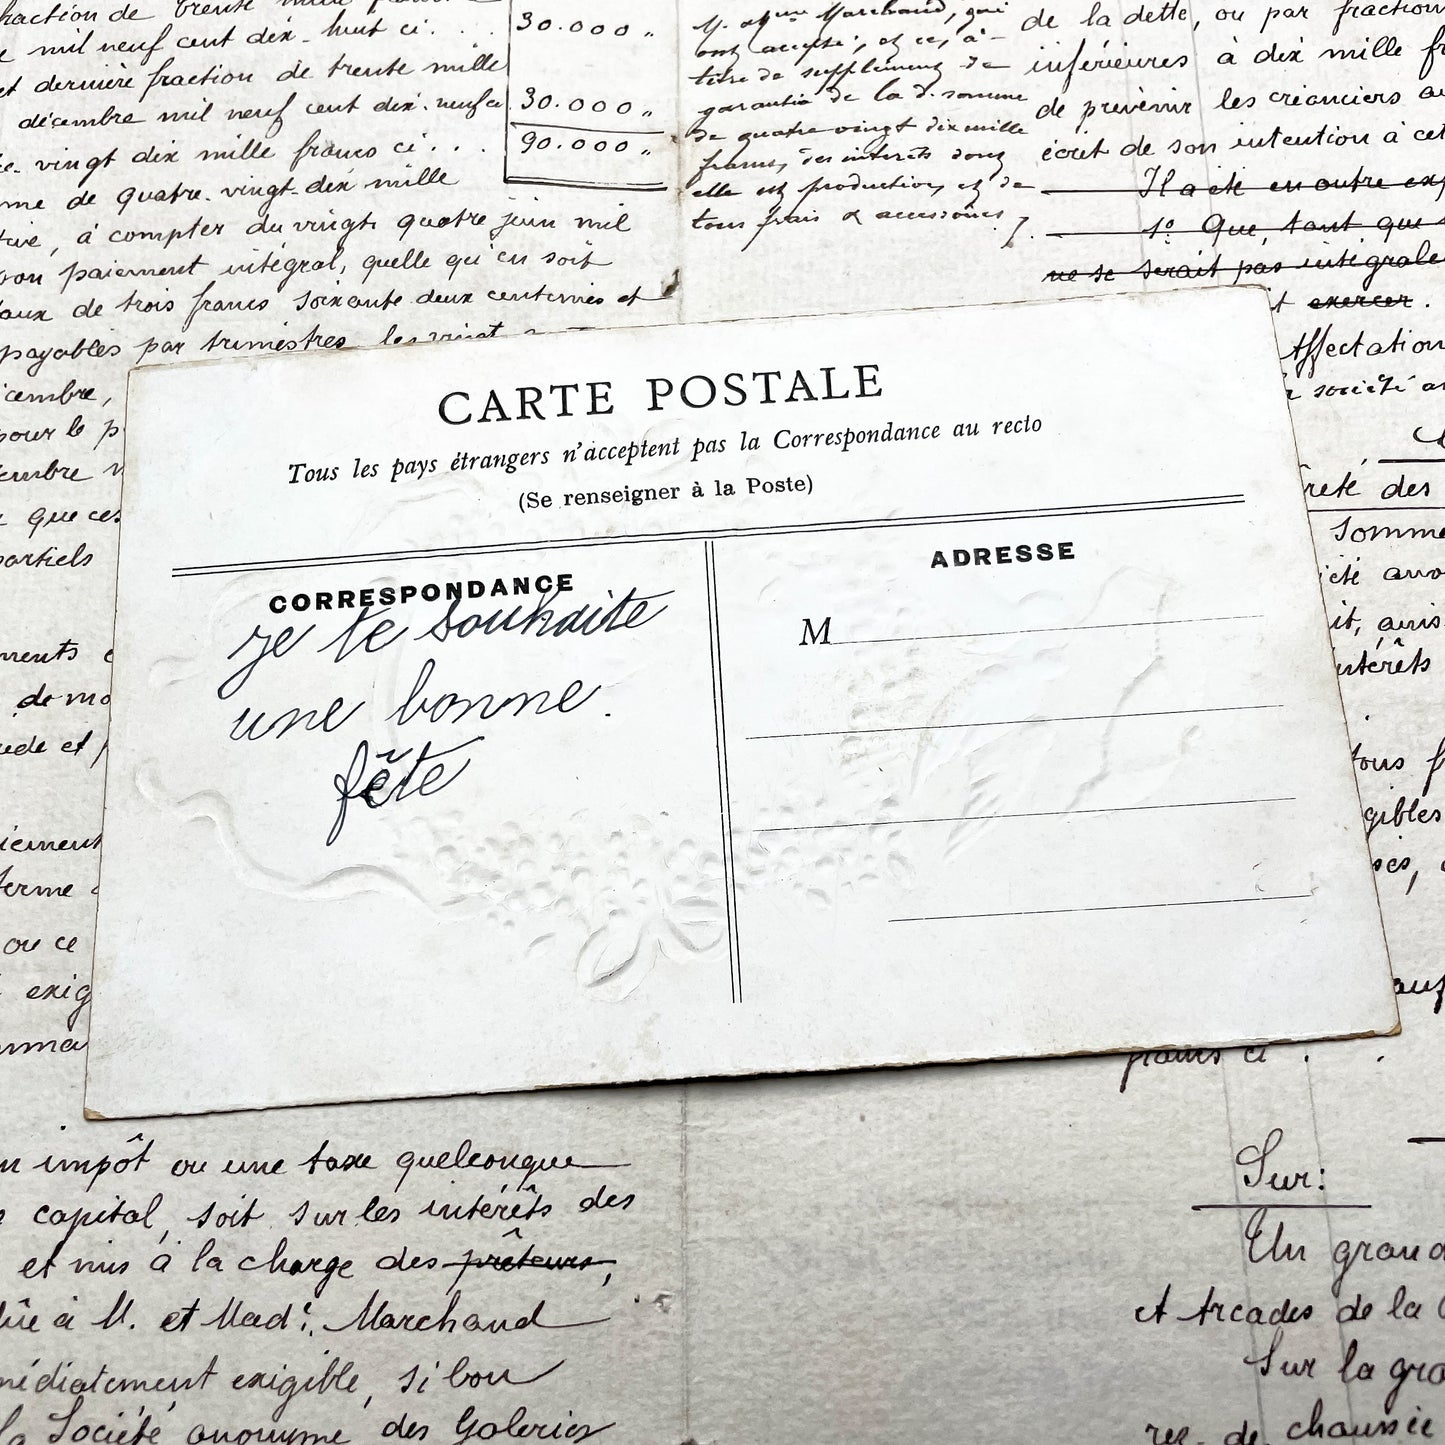 fraction de trente mille
mil neuf cent dix-huit ci . . . 30.000 "
et dernière fraction de trente mille
décembre mil neuf cent dix-neuf ci 30.000 "
vingt dix mille francs ci . . . 90.000 "
me de quatre-vingt-dix mille
à compter du vingt quatre juin mil
son paiement intégral, quelle qu'en soit
taux de trois francs soixante deux centimes et
payables par trimestres les vingt
cembre,
pour le p
embre
que ces
partiels
ments
de mo
et
iement
terme
ou ce
exig
M. Mme Marchand, qui
ont accepté, et ce, à
titre de supplément de
garantie de la d. somme
de quatre vingt dix mille
francs, des intérêts dont
elle est productive, et de
tous frais & accessoires
de la dette, ou par fraction
inférieures à dix mille fr
de prévenir les créanciers au
écrit de son intention à cet
Il a été en outre exp
1º Que, tant que
ne se serait pas intégrale
t exercer.
Affectation
société an
reté des
somme
iété ano
it, ains
intérêts
tous f
gibles
CARTE POSTALE
Tous les pays étrangers n'acceptent pas la Correspondance au recto
(Se renseigner à la Poste)
CORRESPONDANCE
je te souhaite
une bonne.
fête
ADRESSE
M
francs ci .
n impôt ou une taxe quelconque
capital, soit sur les intérêts des
et mis à la charge des prêteurs,
due à M. et Made. Marchand
médiatement exigible, si bon
la Société anonyme des Galeries
Sur:
Un grand
et Arcades de la
Sur la gra
rez-de-chaussée